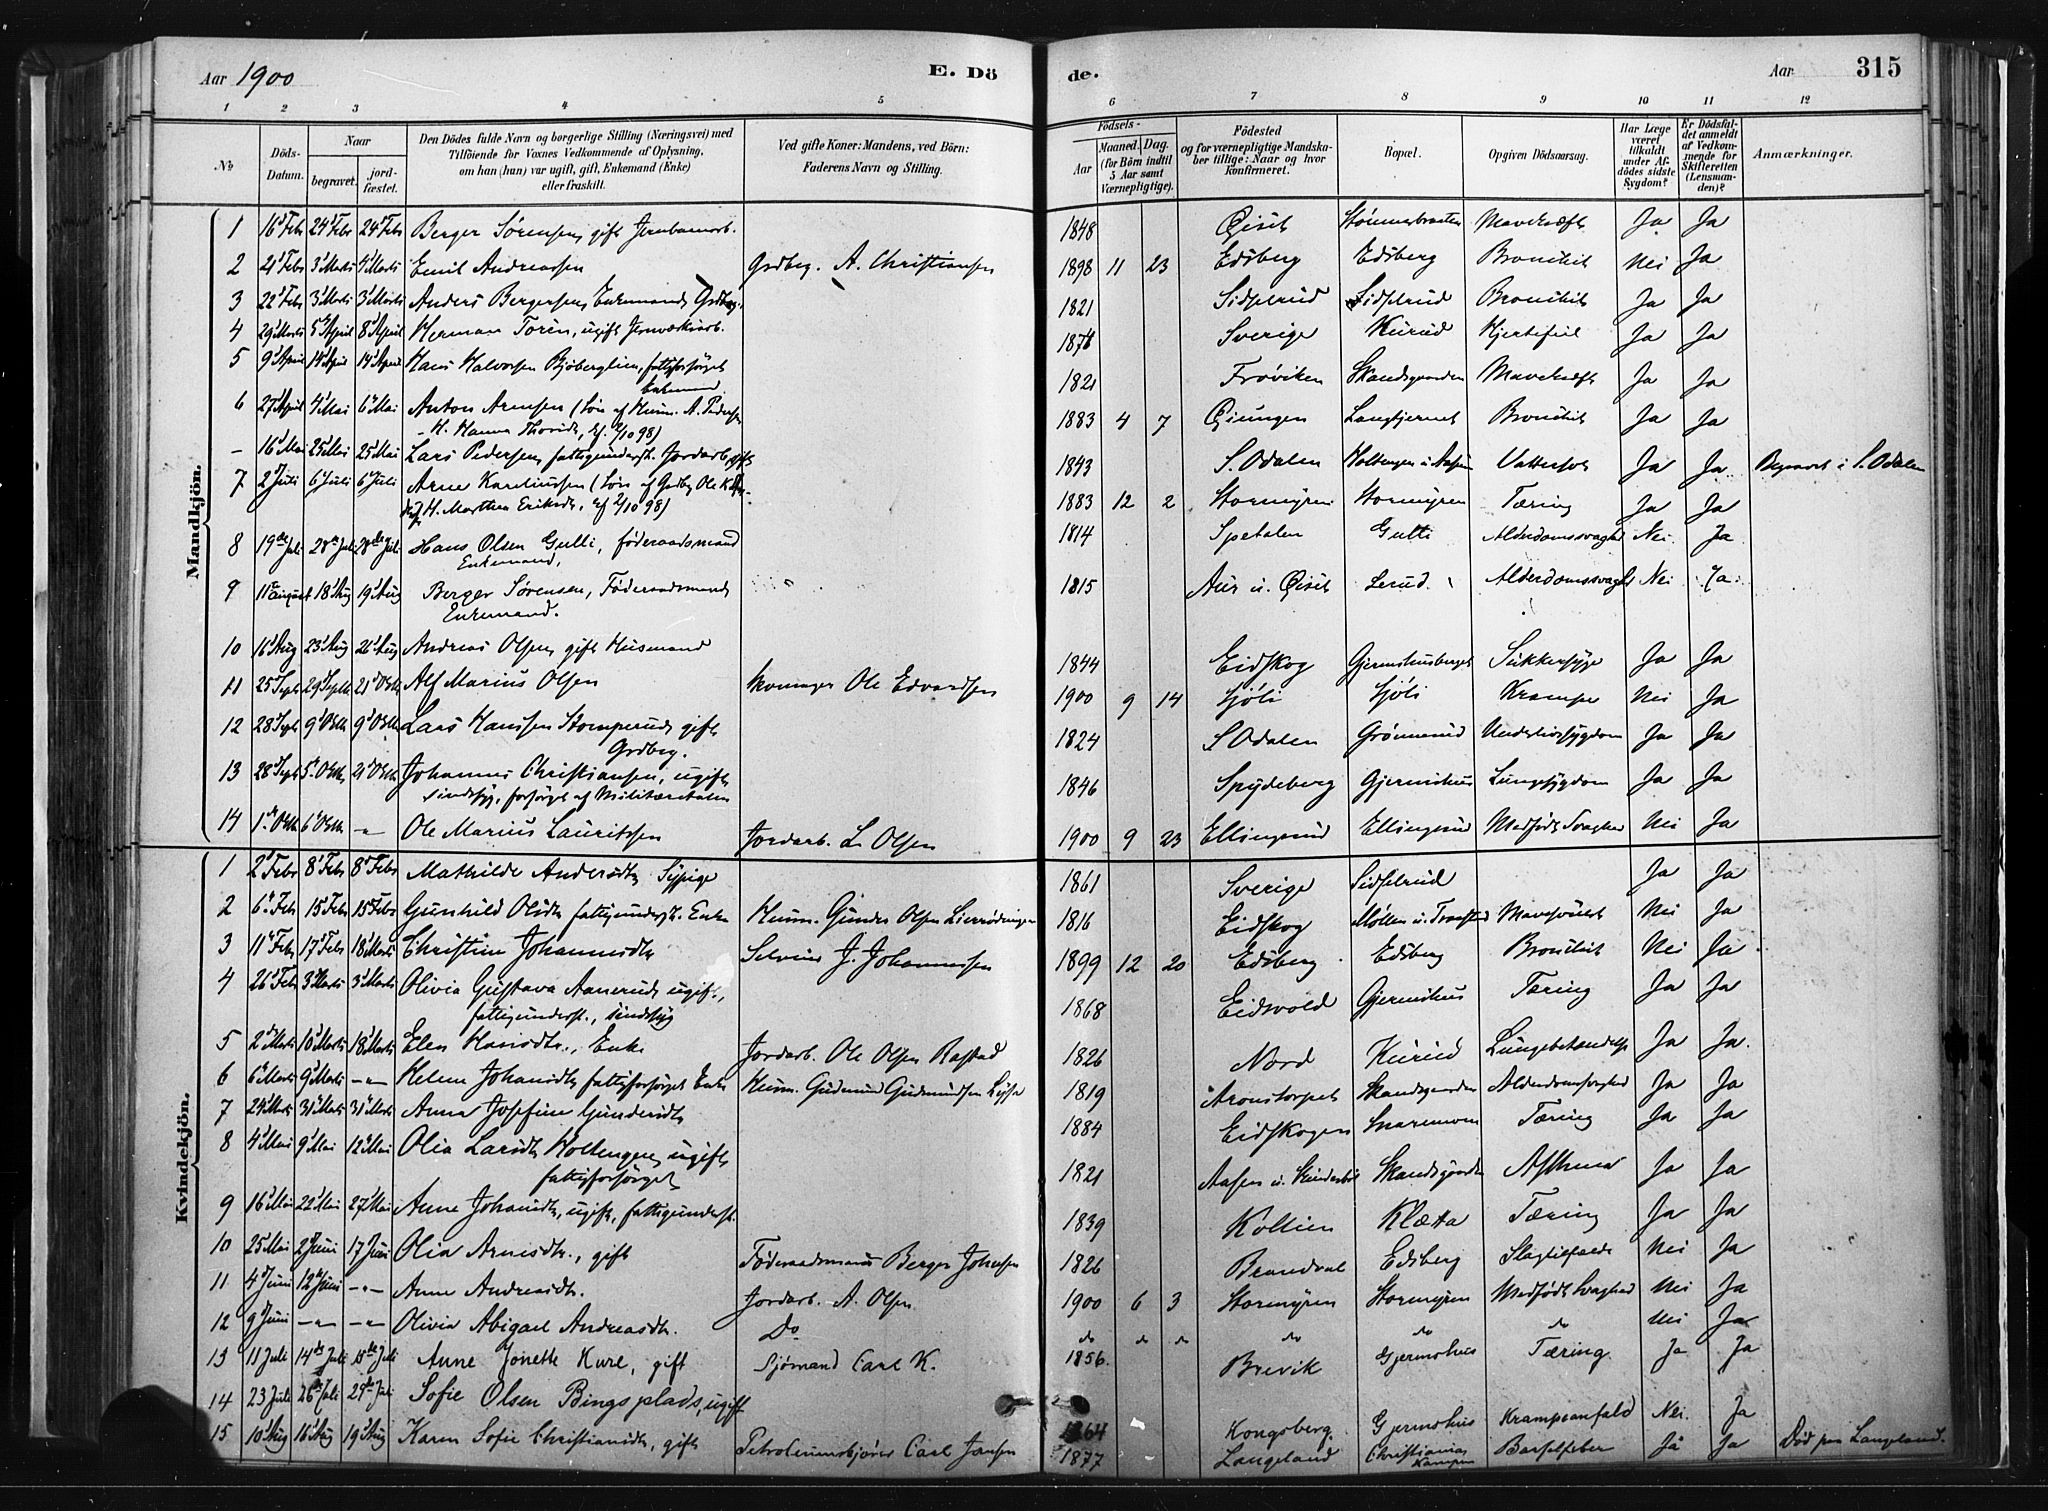 Aar 1900
E. Dö
de.
Aar
315
1 2 3 4 5 6 7 8 9 10 11 12
No
Döds-Datum.
Naar
begravet.
jord-fæstet.
Den Dödes fulde Navn og borgerlige Stilling (Næringsvei) med
Tilföiende for Voxnes Vedkommende af Oplysning,
om han (hun) var ugift, gift, Enkemand (Enke)
eller fraskilt.
Ved gifte Koner: Mandens, ved Börn:
Faderens Navn og Stilling.
Födsels-
Aar
Maaned.
Dag.
(for Börn indtil
5 Aar samt
Værnepligtige).
Födested
og for værnepligtige Mandska-
ber tillige: Naar og hvor
konfirmeret.
Bopæl.
Opgiven Dödsaarsag.
Har Læge
været
tilkaldt
under Af-
dödes sidste
Sygdom?
Er Dödsfal-
det anmeldt
af Vedkom-
mende for
Skifteretten
(Lensman-
den)?
Anmærkninger.
Mandkjön.
1 16 Febr 24 Febr 24 Febr Berger Sörensen, gift 1848 Ja Ja
2 21 Febr 3 Marts 4 Marts Emil Andreassen Grdbrg. A. Christiansen 1898 11 23 Edsberg Edsberg Bronchit Nei Ja
3 22 Febr 3 Marts 3 Marts Anders Bergersen, Enkemand, Grdbrg. 1821 Sidselrud Sidselrud Bronchit Ja Ja
4 29 Marts 5 April 8 April Herman Torén, ugift Sverige Kurud Hjertefeil Ja Ja
5 9 April 14 April 14 April Hans Halvorsen fattigforsörget
Enkemand
1821 Fröviken Skandsgaarden Mavekræft Ja Ja
6 27 April 4 Mai 6 Mai Anton Arnesen (Sön af Husm. A. Pedersen
H. Hanna Thorsdt. 1883 4 7 Gjeungen Langtjernet Bronchit Ja Ja
- 16 Mai 25 Mai 25 Mai Lars Pedersen, fattigunderst. Jordarb., gift 1843 S. Odalen Vattersot Ja Ja Begravet i S. Odalen
7 2 Juli 6 Juli 6 Juli Arne Kareliussen (Sön af Grdbrg Ole
H. Marthea Eriksdt. 1883 12 2 Stormyren Stormyren Tæring Ja Ja
8 19de Juli 28de Juli 28de Juli Hans Olsen Gulli, föderaadsmand
Enkemand, 1814 Spetalen Gulli Alderdomssvaghed Nei Ja
9 11te August 18 Aug 19 Aug Berger Sörensen, Föderaadsmand
Enkemand. 1815 Aur u. Öiset Lerud Alderdomssvaghed Nei Ja
10 16 Aug 23 Aug 26 Aug Andreas Olsen, gift Husmand 1844 Eidskog Sukkersyge Ja Ja
11 25 Sept 29 Septbr 21 Oktb Alf Marius Olsen Ole Edvardsen 1900 9 14 Sjöli Sjöli Krampe Nei Ja
12 28 Sept 9 Oktb 9 Oktb Lars Hanssen Stomperud, gift
Grdbrg. 1824 S Odalen Grönnerud Underlivssygdom Ja Ja
13 28 Sept 5 Oktb 21 Oktb Johannes Christiansen, ugift
sindssyg, forsörget af Militæretaten 1846 Spydeberg Gjermshus Lungesygdom Ja Ja
14 1 Oktb 6 Oktb -"- Ole Marius Lauritssen Jordarb. L. Olsen 1900 9 23 Ellingsrud Ellingsrud Medfödt Svaghed Nei Ja
Kvindekjön.
1 2 Febr 8 Febr 8 Febr Mathilde Andersdtr Sypige 1861 Sverige Sidselrud Ja Ja
2 6 Feb 15 Febr 15 Febr Gunhild Olsdt fattigunderst. Enke Husm. Gunder Olsen 1816 Eidskog Nei Ja
3 11 Feb 17 Febr 18 Marts Christine Johannesdtr J. Johannessen 1899 12 20 Edsberg Edsberg Bronchit Nei Ja
4 26 Feb 3 Marts 3 Marts Olivia Gustava Aanerud, ugift,
fattigunderst., sindssyg 1868 Eidsvold Gjermshus Tæring Ja Ja
5 2 Marts 10 Marts 18 Marts Elen Hansdtr., Enke Jordarb. Ole Olsen Rastad 1826 Nord Kurud Lungebetændelse Ja Ja
6 6 Marts 9 Marts -"- Helene Johansdtr, fattigforsörget Enke Husm. Gudmund Gudmundsen 1819 Aronstorpet Skandsgaarden Alderdomssvaghed Ja Ja
7 24 Marts 31 Marts 31 Marts Anna Josefine Gundersdtr 1884 Eidskogen Snaremoen Tæring Ja Ja
8 4 Mai 9 Mai 12 Mai Olia Larsdtr Holtengen, ugift
fattigforsörget 1821 Skandsgaarden Asthma Ja Ja
9 16 Mai 22 Mai 27 Mai Anne Johansdtr, ugift, fattigunderst. 1839 Kollien Klæta Tæring Ja Ja
10 25 Mai 2 Juni 17 Juni Olia Arnesdtr., gift Föderaadsmand Berger Johnsen 1826 Brandval Edsberg Slagtilfælde Nei Ja
11 4 Juni 12 Juni -"- Anne Andreasdtr. Jordarb. A. Olsen 1900 6 3 Stormyren Stormyren Medfödt Svaghed Nei Ja
12 9 Juni -"- -"- Olivia Abigael Andreasdtr. Do do do do do do do Nei Ja
13 11 Juli 14de Juli 15de Juli Anne Jonette Kure, gift Sjömand Carl K. 1856. Brevik Gjermshus Tæring Ja Ja
14 23 Juli 26de Juli 29de Juli Sofie Olsen Bingsplads, ugift 1864 Kongsberg Gjermshus Krampeanfald Nei. Ja
15 10 Aug 16 Aug 19 Aug Karen Sofie Christiansdt, gift Petroleumskjörer Carl Jansen 1877 Langeland Christiania
Kampen Barselfeber Ja Ja Död paa Langeland.